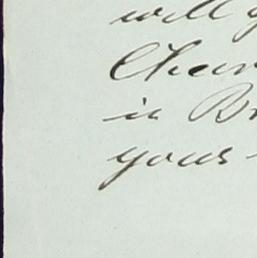 will y
Cheer
in Br
yours